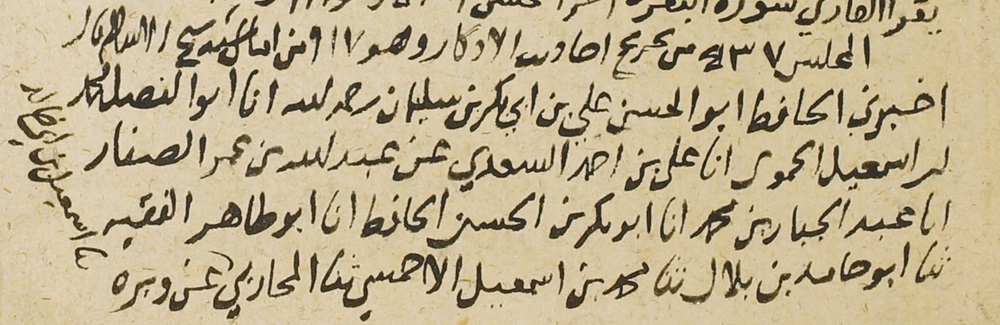 يقرا القاري سورة البقرة
المجلس ٤٣٧ من تخريج احاديث الاذكار وهو ١٧ من امالي شيخ الاسلام قال
اخبرني الحافظ ابو الحسن علي بن ابي بكر بن سليمان رحمه الله انا ابو الفضل محمد
بن اسمعيل الحموي انا علي بن احمد السعدي عن عبد الله بن عمر الصفار
انا عبد الجبار بن محمد انا ابو بكر بن الحسين الحافظ انا ابو طاهر الفقيه
ثنا ابو حامد بن بلال ثنا محمد بن اسمعيل الاحمسي ثنا المحاربي عن وبره
اسمعيل بن ابي خالد